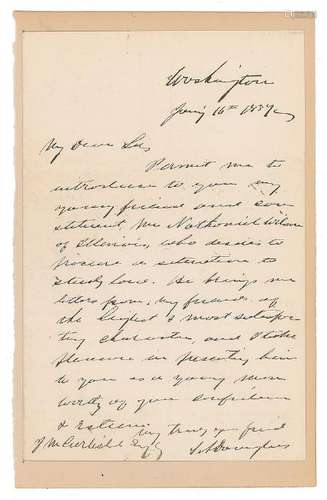 Washington
Jany 16th 1857
My Dear Sir,
Permit me to
introduce to you my
young friend and con
stituent Mr Nathaniel Wilson
of Illinois, who desires to
procure a situation to
study law. He brings me
letters from my friends of
the highest & most satisfac
tory character, and I take
pleasure in presenting him
to you as a young man
worthy of your confidence
& Esteem.
Very truly your friend
J M Carlisle Esq
S A Douglas